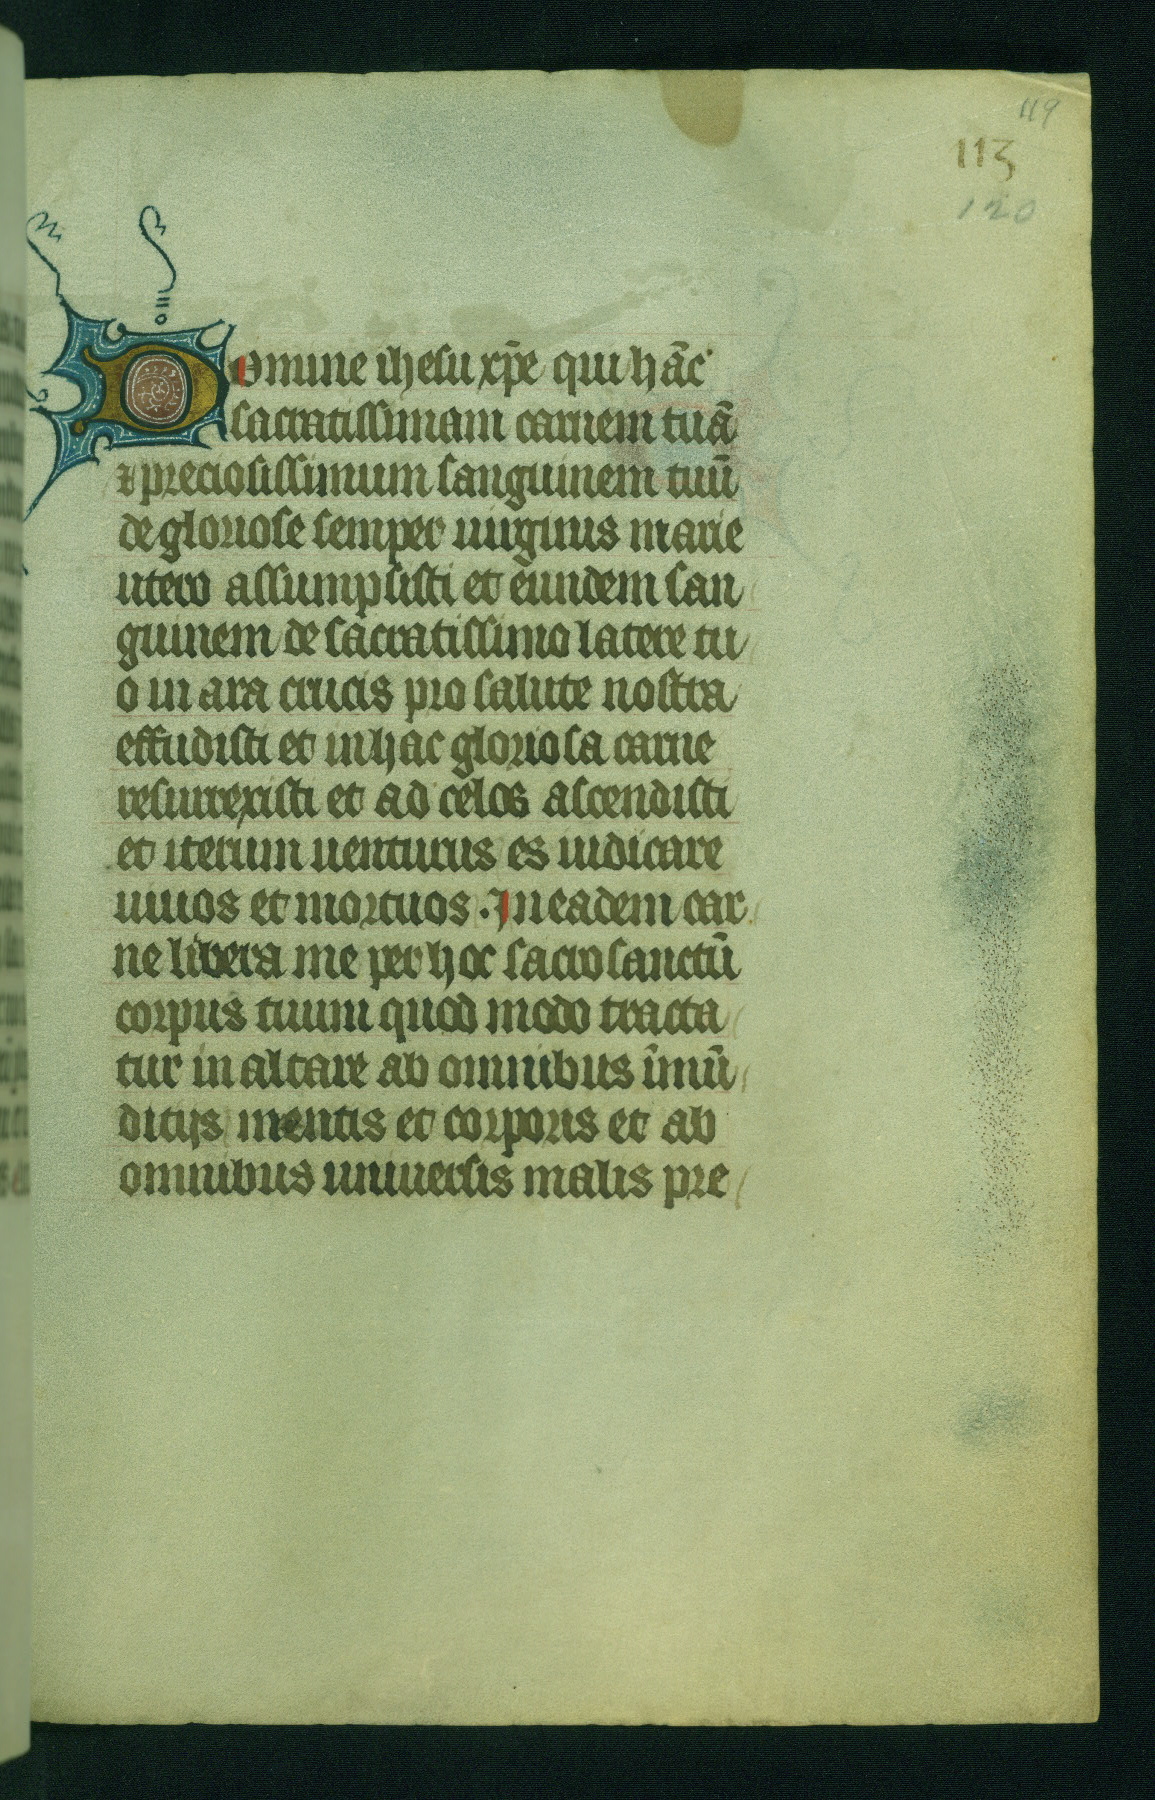 119
113
120
Domine ihesu xp̄e qui hāc
sacratissimam carnem tuā
⁊ preciosissimum sanguinem tuū
de gloriose semper uirginis marie
utero assumpsisti et eundem san
guinem de sacratissimo latere tu
o in ara crucis pro salute nostra
effudisti et in hac gloriosa carne
resurrexisti et ad celos ascendisti
et iterum uenturus es iudicare
uiuos et mortuos . In eadem car
ne libera me per hoc sacrosanctū
corpus tuum quod modo tracta
tur in altare ab omnibus īmū
ditijs mentis et corporis et ab
omnibus uniuersis malis pre